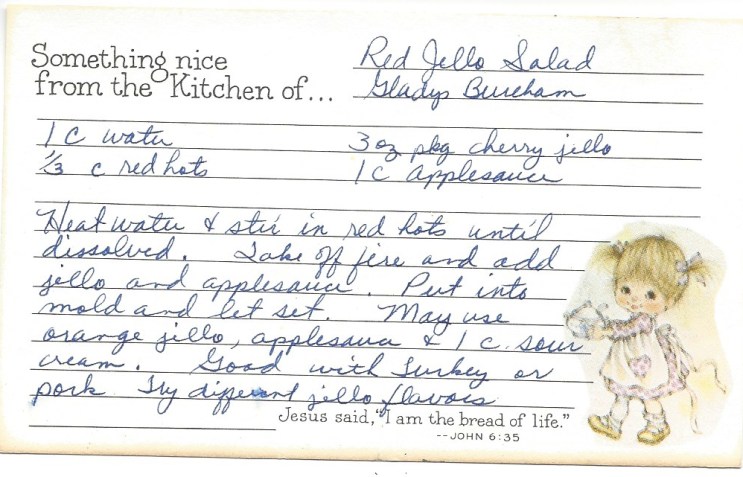 Something nice
from the Kitchen of...
Red Jello Salad
Gladys Burcham
1 c water
3 oz pkg cherry jello
1/3 c red hots
1 c applesauce
Heat water & stir in red hots until
dissolved. Take off fire and add
jello and applesauce. Put into
mold and let set. May use
orange jello, applesauce & 1 c. sour
cream. Good with Turkey or
pork. Try different jello flavors
Jesus said, "I am the bread of life."
--JOHN 6:35